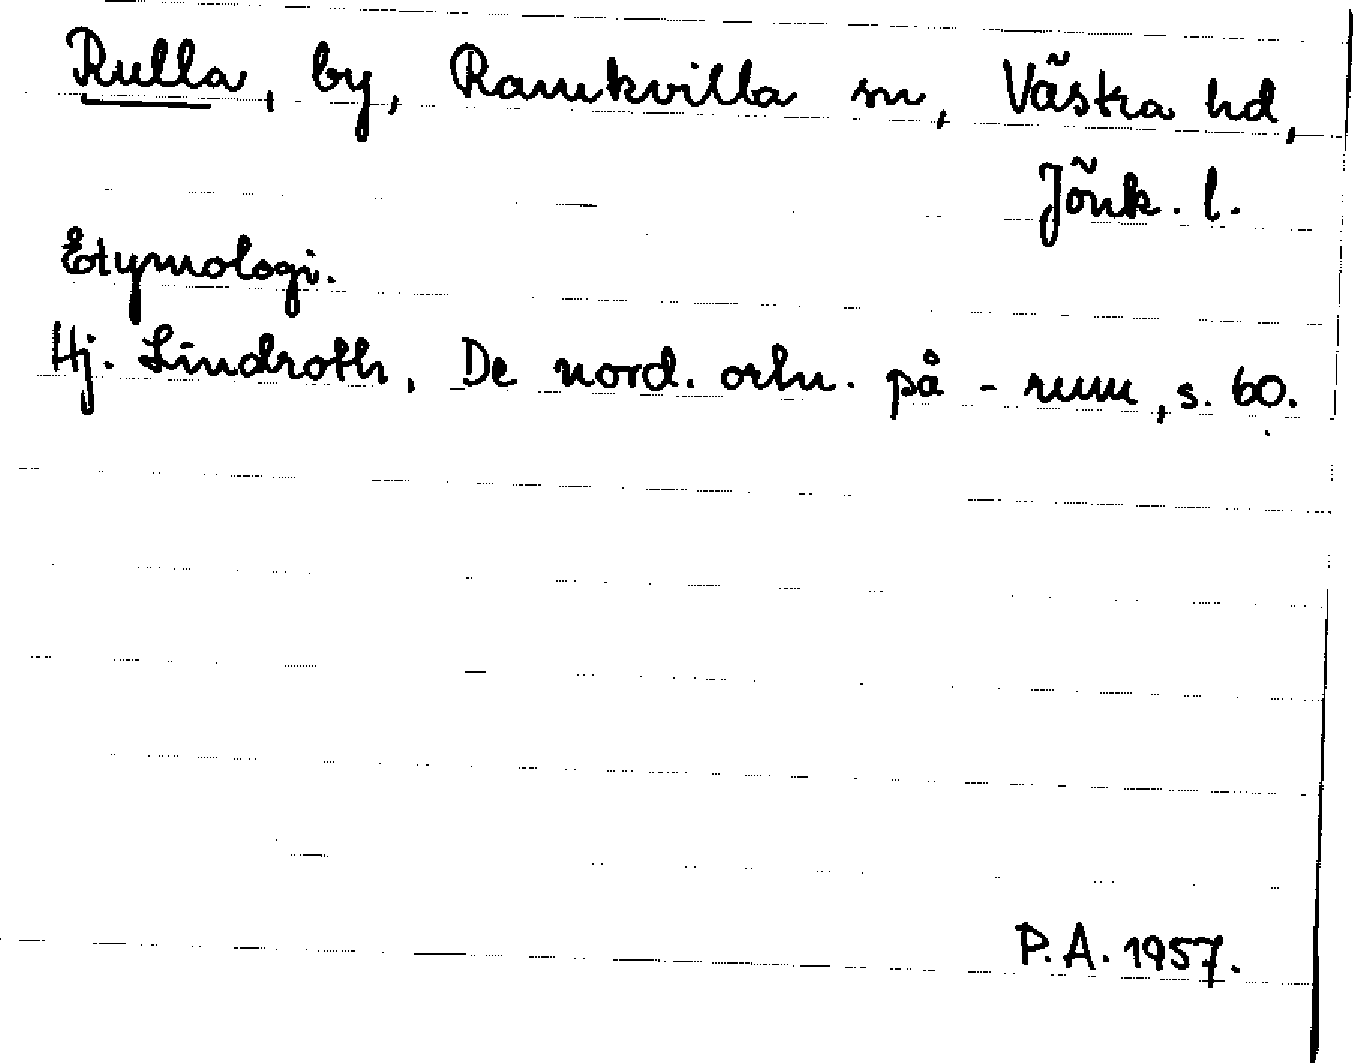 Rulla, by, Ramkvilla sn, Västra hd,
Jönk. l.
Etymologi.
Hj. Lindroth, De nord. ortn. på -rum, s. 60.
P.A. 1957.